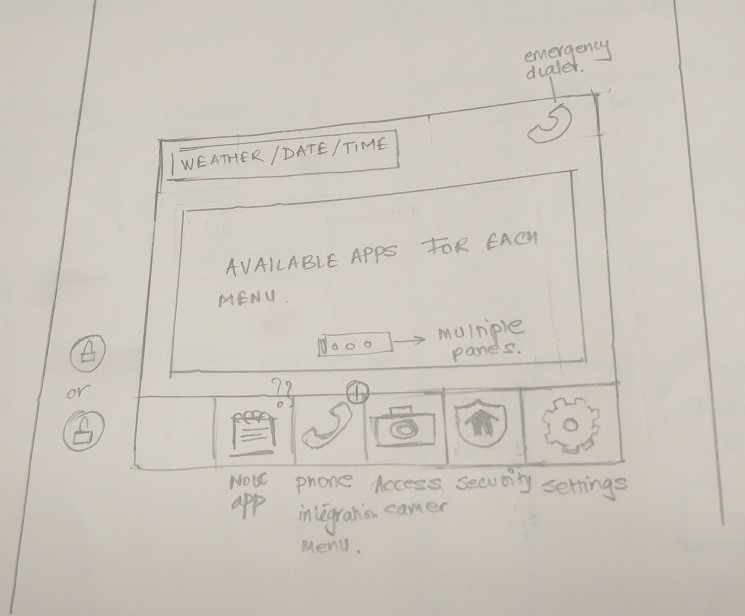 emergency
dialer.
WEATHER/DATE/TIME
AVAILABLE APPS FOR EACH
MENU.
MULTIPLE
panes.
or
??
Note
app
phone
integration
Menu.
Access
camer
security
settings